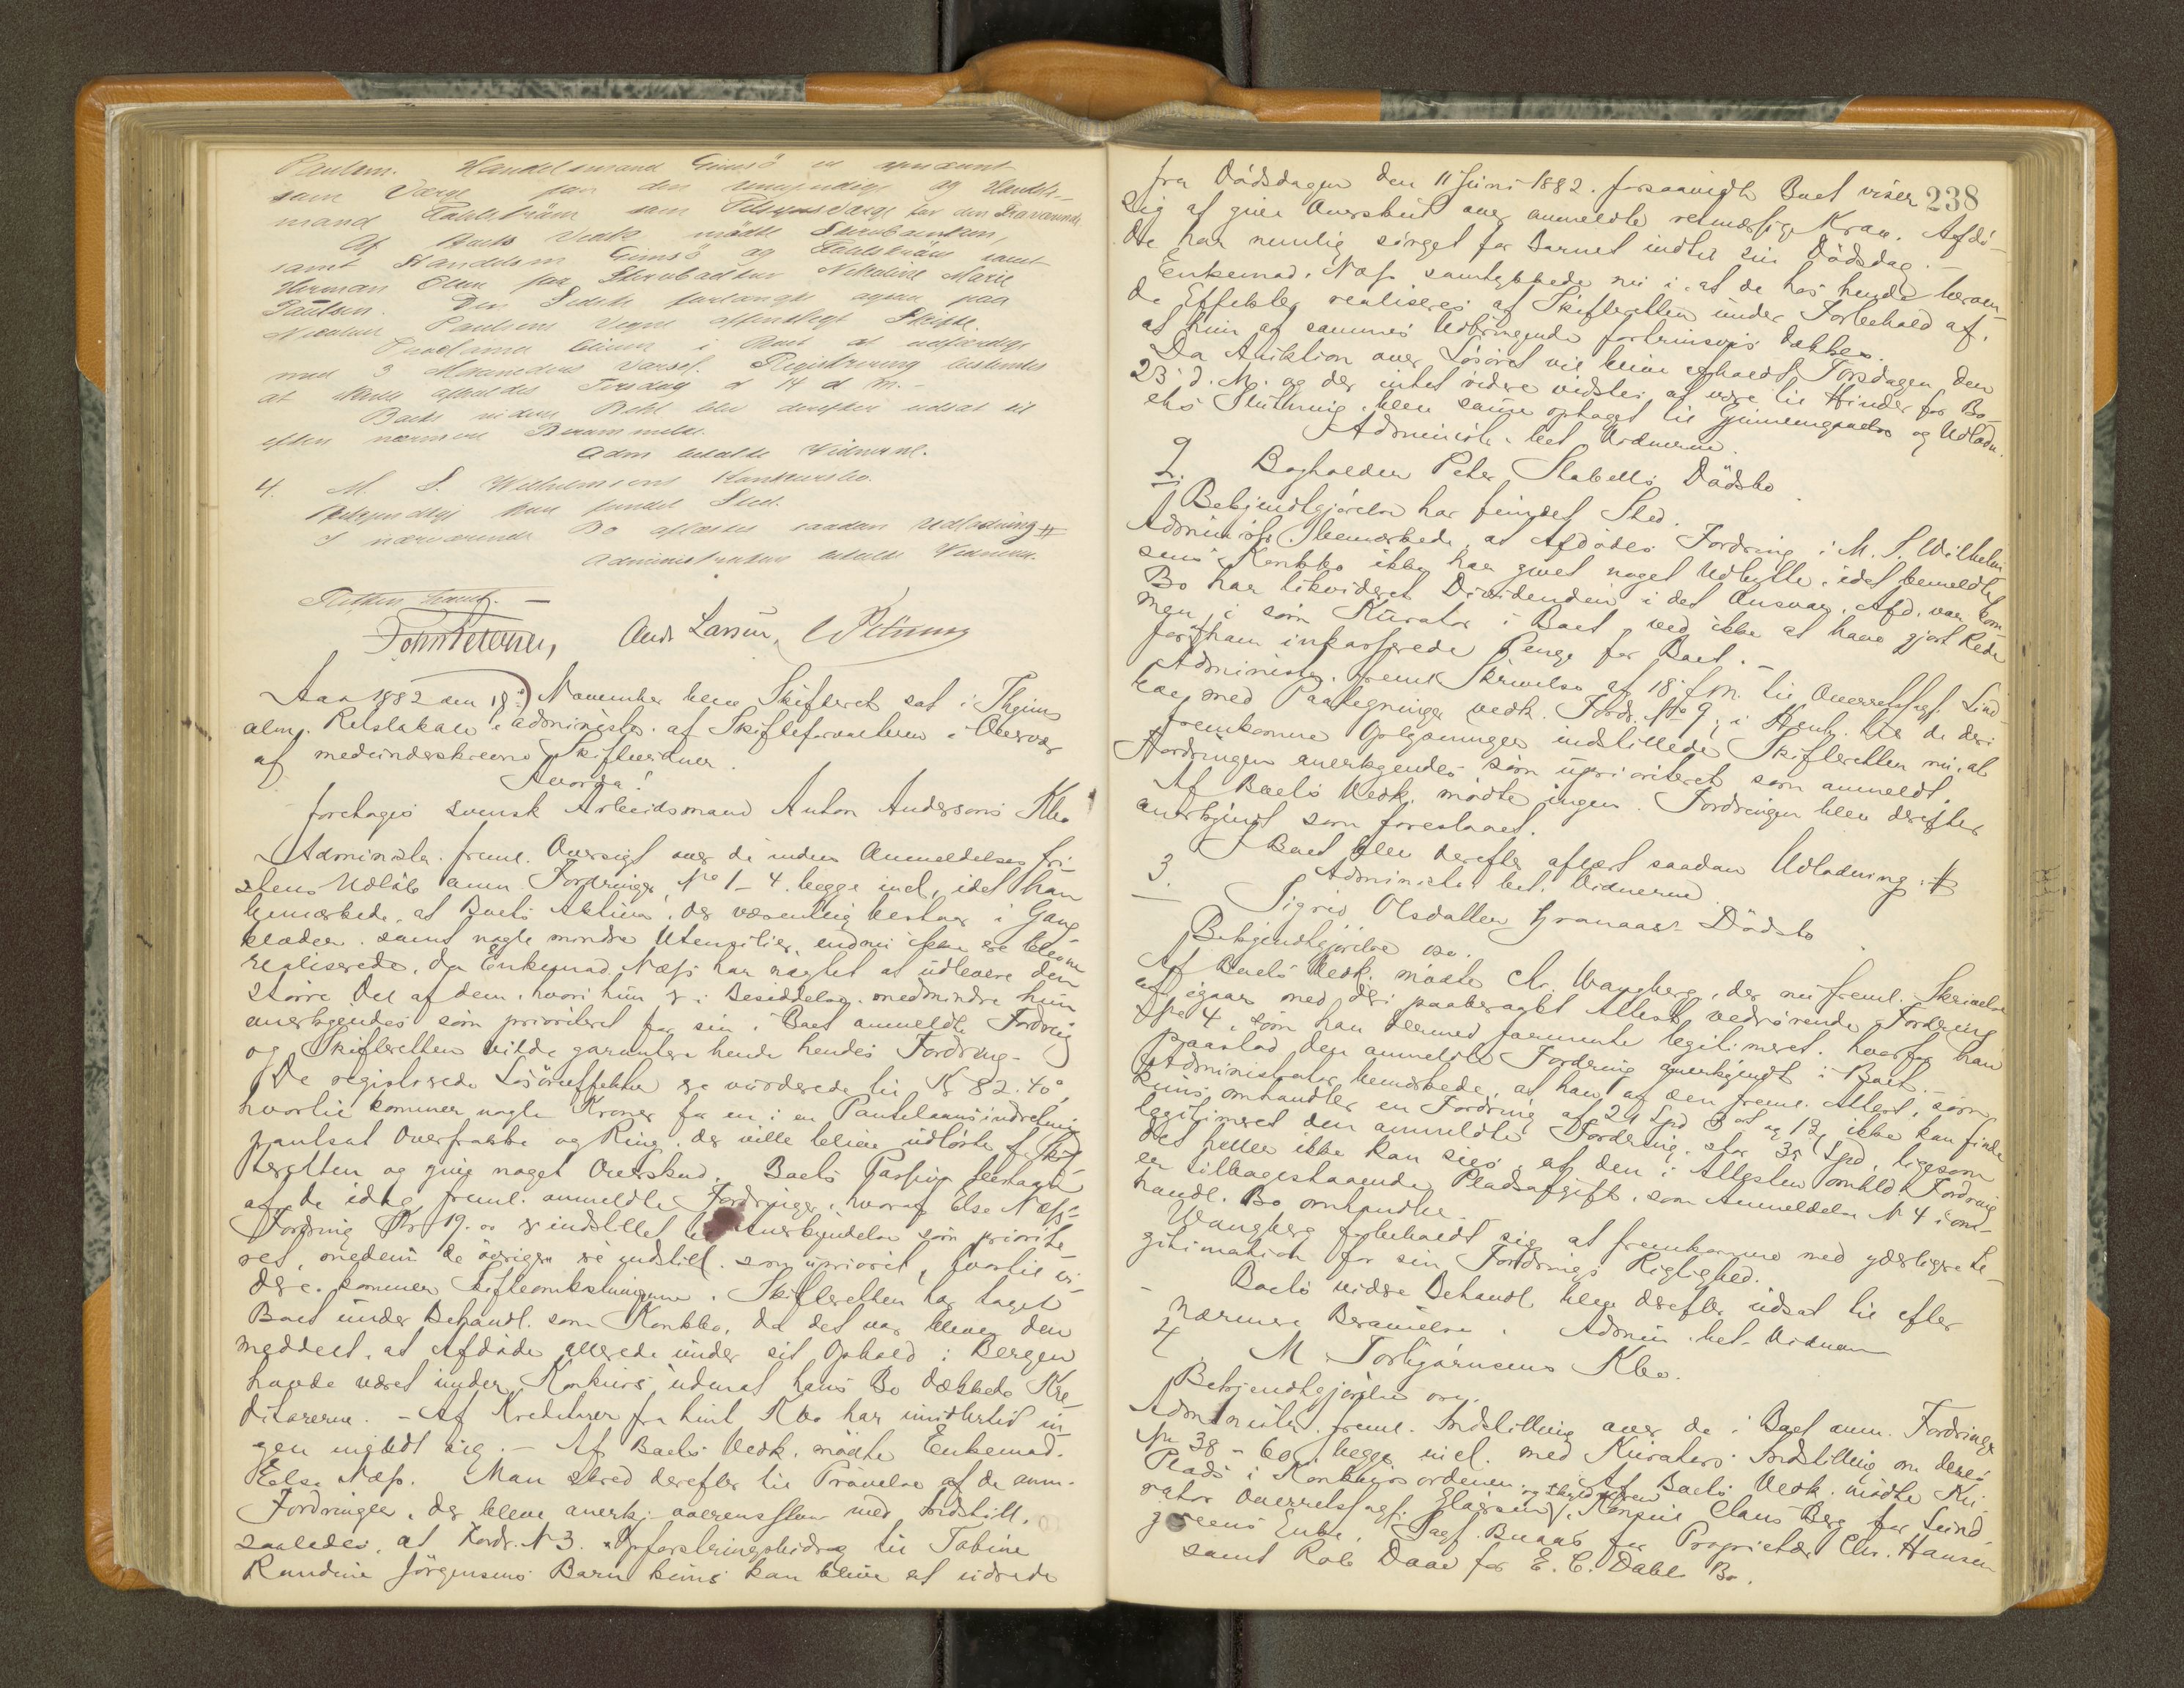 Paulsen. Handelsmand Gimsö er opnævnt
som Værge for den umyndige og Handels-
mand Fahlström som Tilsynsværge for den Fraværende.
Af Boets Vedk. mödte
samt Handelsm. Gimsö og Fahlström samt
Herman Olsen for Nikoline Marie
Paulsen. Den Sidste forlangte ogsaa paa
Nicoline Paulsens Vegne offentligt Skifte.
Proclama bliver i Boet at udfærdige
med 3 Maaneders Varsel. Registrering bestemtes
at skulle afholdes Tirsdag d 14 d. M. -
Boets videre Beh. blev derefter udsat til
efter nærmere Berammelse.
Adm betalte Vidnerne.
4. M. S. Wilhelmsens Konkursbo.
Bekjendtgj har fundet Sted.
I nærværende Bo aflæstes saadan Udlodning #
Administrator betalte Vidnerne.
Retten hævet. -
John Petersen, Andr Larsen,
Aar 1882 den 18. November blev Skifteret sat i Thjems
alm. Retslokale, administr. af Skifteforvalteren i Overvær
af medunderskrevne Skiftevidner.
Hvorda!
foretoges svensk Arbeidsmand Anton Andersons Kbo
Administr. freml. Oversigt over de inden Anmeldelsesfri-
stens Udløb anm. Fordringer No 1-4. begge incl, idet han
bemærkede, at Boets Aktiva, der væsentlig bestaar i Gang
klæder samt nogle mindre Utensilier, endnu ikke ere blevne
realiserede, da Enkemad. Næss har nægtet at udlevere den
större Del af dem, hvori hun er i Besiddelse, medmindre hun
anerkjendes som prioriteret for sin i Boet anmeldte Fordring
og Skifteretten vilde garantere hende hendes Fordring. -
De registrerede Lösöreeffekter ere vurderede til Kr 82.40,
hvortil kommer nogle Kroner for en i en Pantelaansindretning
pantsat Overfrakke og Ring, der ville blive udlöste af Skif-
teretten og give noget Overskud. Boets Passiva fremgaar
af de idag freml. anmeldte Fordringer, hvoraf Else Næss's
Fordring Kr 19.00 er indstillet til Anerkjendelse som priorite-
ret, medens de övrige ere indstill. som uprioret, hvortil vi-
dere kommer Skifteomkostningerne. Skifteretten har taget
Boet under Behandl. som Konkbo, da det var bleven den
meddelt, at Afdöde allerede under sit Ophold i Bergen
havde været under Konkurs uden at hans Bo dækkede Kre-
ditorerne. - Af Kreditorer fra hint Kbo har imidlertid in-
gen meldt sig. - Af Boets Vedk. mödte Enkemad.
Else Næss. Man skred derefter til Prövelse af de anm.
Fordringer, der bleve anerkj. overensstem. med Indstill.
saaledes, at Fordr. N 3. Opfostringsbidrag til Tobine
Randine Jörgensens Barn kuns kan blive at udrede
238
fra Dödsdagen den 11 Juni 1882. forsaavidt Boet viser
Sig at give Overskud over anmeldte retmæssige Krav. Afdö-
de har nemlig sörget for Barnet indtil sin Dödsdag. -
Enkemad. Næss samtykkede nu i, at de hos hende beroen-
de Effekter realiseres af Skifteretten under Forbehold af,
at hun af sammes Udbringende fortrinsvis dækkes.
Da Auktion over Lösöret vil blive afholdt Torsdagen den
23. d. M. og der intet videre vidstes at være til Hinder for Bo-
ets Slutning, blev samme optaget til Gjennemgaaelse og Udlodn.
Administr. bet. Vidnerne.
2. Bogholder Peter Stabells Dödsbo
Bekjendtgjörelse har fundet Sted.
Administr. bemærkede, at Afdödes Fordring i M. S. Wilhelm-
sens Konkbo ikke har givet noget Udbytte, idet bemeldte
Bo har likvideret Dividenden i det Ansvar, Afd. var kom-
men i som Kurator i Boet, ved ikke at have gjort Rede
for af ham inkasserede Penge for Boet. -
Administr. freml Skrivelse af 18. f. M. til Overretssagf. Lind-
boe, med Paategninger vedk. Fordr. No 9; i Henh. til de deri
fremkomne Oplysninger indstillede Skifteretten nu, at
Fordringen anerkjendes som uprioriteret som anmeldt.
Af Boets Vedk. mödte ingen. Fordringen blev derefter
anerkjendt som foreslaaet.
I Boet blev derefter aflæst saadan Udlodning: #
Administr bet. Vidnerne.
3. Sigrid Olsdatter Granaas Dödsbo
Bekjendtgjörelse osv.
Af Boets Vedk. mödte Chr. Wangberg, der nu freml. Skrivelse
af igaar med deri paaberaabt Attest, vedrörende Fordring
No 4, som han dermed formente legitimeret, hvorfor han
paastod den anmeldte Fordring anerkjendt i Boet. -
Administrator bemærkede, at han af den freml. Attest, som
kuns omhandler en Fordring af 24 Spd 3 ort og 12, ikke kan finde
legitimeret den anmeldte Fordring, stor 35 Spd, ligesom
det heller ikke kan sees, at den i Attesten omhldte Fordring
er tilbagestaaende Pladsafgift, som Anmeldelse N 4 i om-
handl. Bo omhandler. -
Wangberg forbeholdt sig at fremkomme med yderligere Le-
gitimation for sin Fordrings Rigtighed.
Boets videre Behandl. blev derefter udsat til efter
nærmere Berammelse. Admin. bet. Vidnerne
4. M. Torbjörnsens Kbo.
Bekjendtgjörelse osv.
Administr. freml. Indstilling over de i Boet anm. Fordringer
No 38-60, begge incl. med Kurators Indstilling om deres
Plads i Konkursordenen. Af Boets Vedk. mödte Ku-
rator Overretssagf. og Skyldneren, Konsul Claus Berg for Lund-
greens Enke, Sagf. Buaas for Proprietær Chr. Hansen
samt Rob Daae for E. C. Dahls Bo.